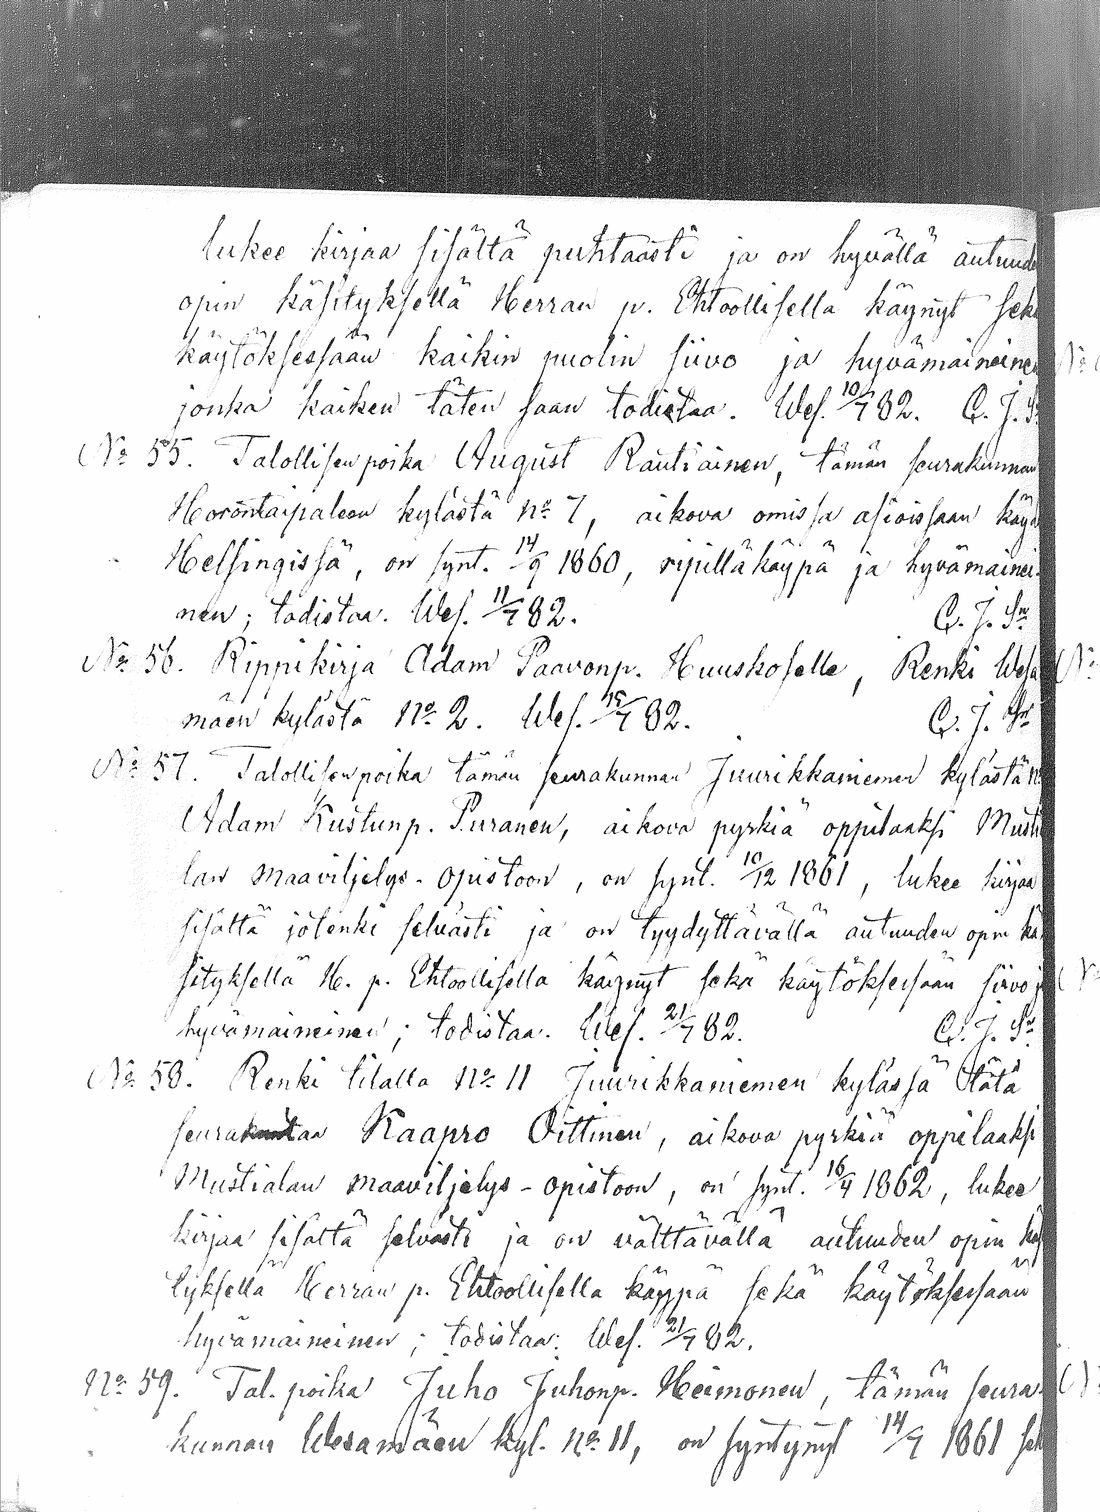 lukee kirjaa sisältä puhtaasti ja on hyvällä autuude
opin käsityksellä Herran p. Ehtoollisella käynyt sek
käytöksessään kaikin puolin siivo ja hyvämaineine
jonka kaiken täten saan todistaa. Wes. 10/7 82. C. J. S
No 55. Talollisen poika August Rautiainen, tämän seurakunnan
Horontaipaleen kylästä No 7, aikova omissa asioissaan käyd
Helsingissä, on synt. 14/9 1860, ripilläkäypä ja hyvämainei-
nen; todistaa. Wes. 11/7 82. C. J. Sn
No 56. Rippikirja Adam Paavonp. Huuskoselle, Renki Wesa
mäen kylästä No 2. Wes. 15/7 82. C. J. Sn
No 57. Talollisen poika tämän seurakunnan Juurikkaniemen kylästä N
Adam Kustunp. Puranen, aikova pyrkiä oppilaaksi Musti
lan maaviljelys-opistoon, on synt. 10/12 1861, lukee kirjaa
sisältä jotenki selvästi ja on tyydyttävällä autuuden opin kä
sityksellä H. p. Ehtoollisella käynyt sekä käytöksessään siivo j
hyvämaineinen; todistaa. Wes. 21/7 82. C. J. Sn
No 58. Renki tilalla No 11 Juurikkaniemen kylässä tätä
seurakuntaa Kaapro Oittinen, aikova pyrkiä oppilaaksi
Mustialan maaviljelys-opistoon, on synt. 16/4 1862, lukee
kirjaa sisältä selvästi ja on välttävällä autuuden opin käs
tyksellä Herran p. Ehtoollisella käypä sekä käytöksessään
hyvämaineinen; todistaa: Wes. 21/7 82.
No 59. Tal. poika Juho Juhonp. Heimonen, tämän seura
kunnan Wesamäen kyl. No 11, on syntynyt 14/9 1861 sek